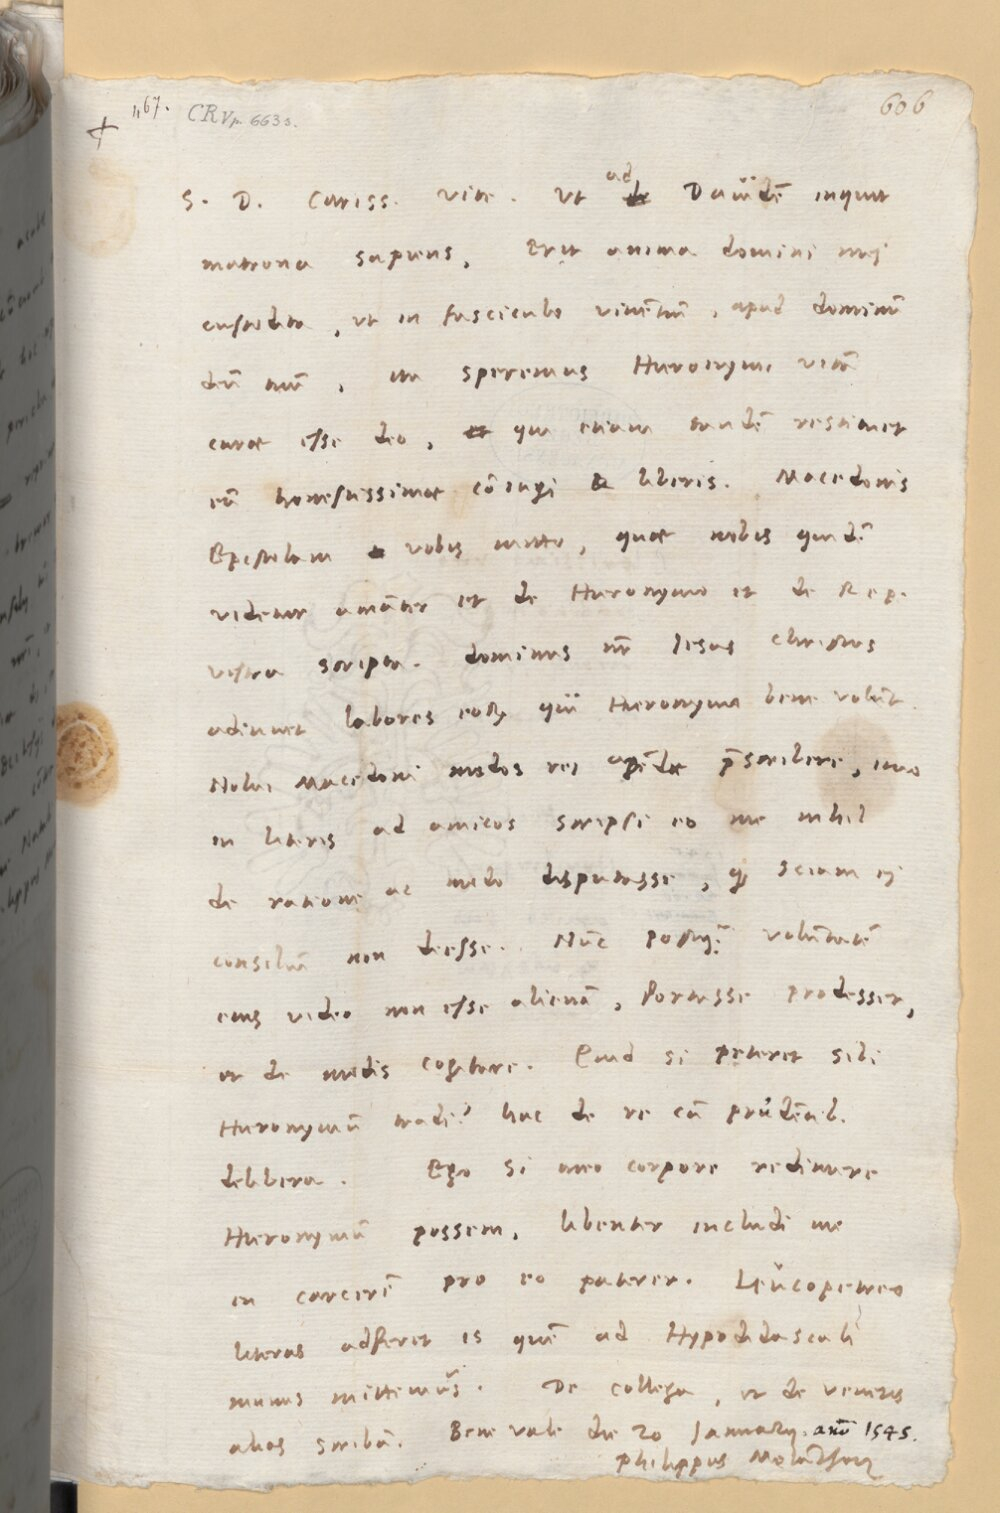 467. CR V p. 663 s.
606
S. D. Cariss. Vite. Ut ad Dauidē inquit
matrona sapiens, Erit anima domini mej
custodita, ut in fasciculo viuētiū, apud dominū
deū tuū, ita speremus Hieronymi vitā
curae esse deo, qui etiam tandē restituet
eū honestissimae cōiugi & liberis. Macedonis
Epistolam vobis mitto, quae nobis quidē
videtur amāter et de Hieronymo et de Rep.
vestra scripta. dominus nr̄ Iesus Christus
adiuuet labores eorū qui Hieronymo bene volūt.
Nolui Macedoni modos rei agēdae p̄scribere, imo
in literis ad amicos scripsi eo me nihil
de ratione ac modo disputasse, qd sciam ej
consiliū non deesse. Nūc postq̄ volūtatē
eius video non esse alienā, fortasse prodesset,
et de modis cogitare. Quid si peteret sibi
Hieronymū tradi? hac de re cū prudētib.
delibera. Ego si meo corpore redimere
Hieronymū possem, libenter includi me
in carcerē pro eo paterer. Leucopetreo
literas adferet is quē ad Hypodidascali
munus mittemus. De collega, et de ueneris
alias scribā. Bene vale die 20 Ianuarij. anno 1545.
philippus Melāthon